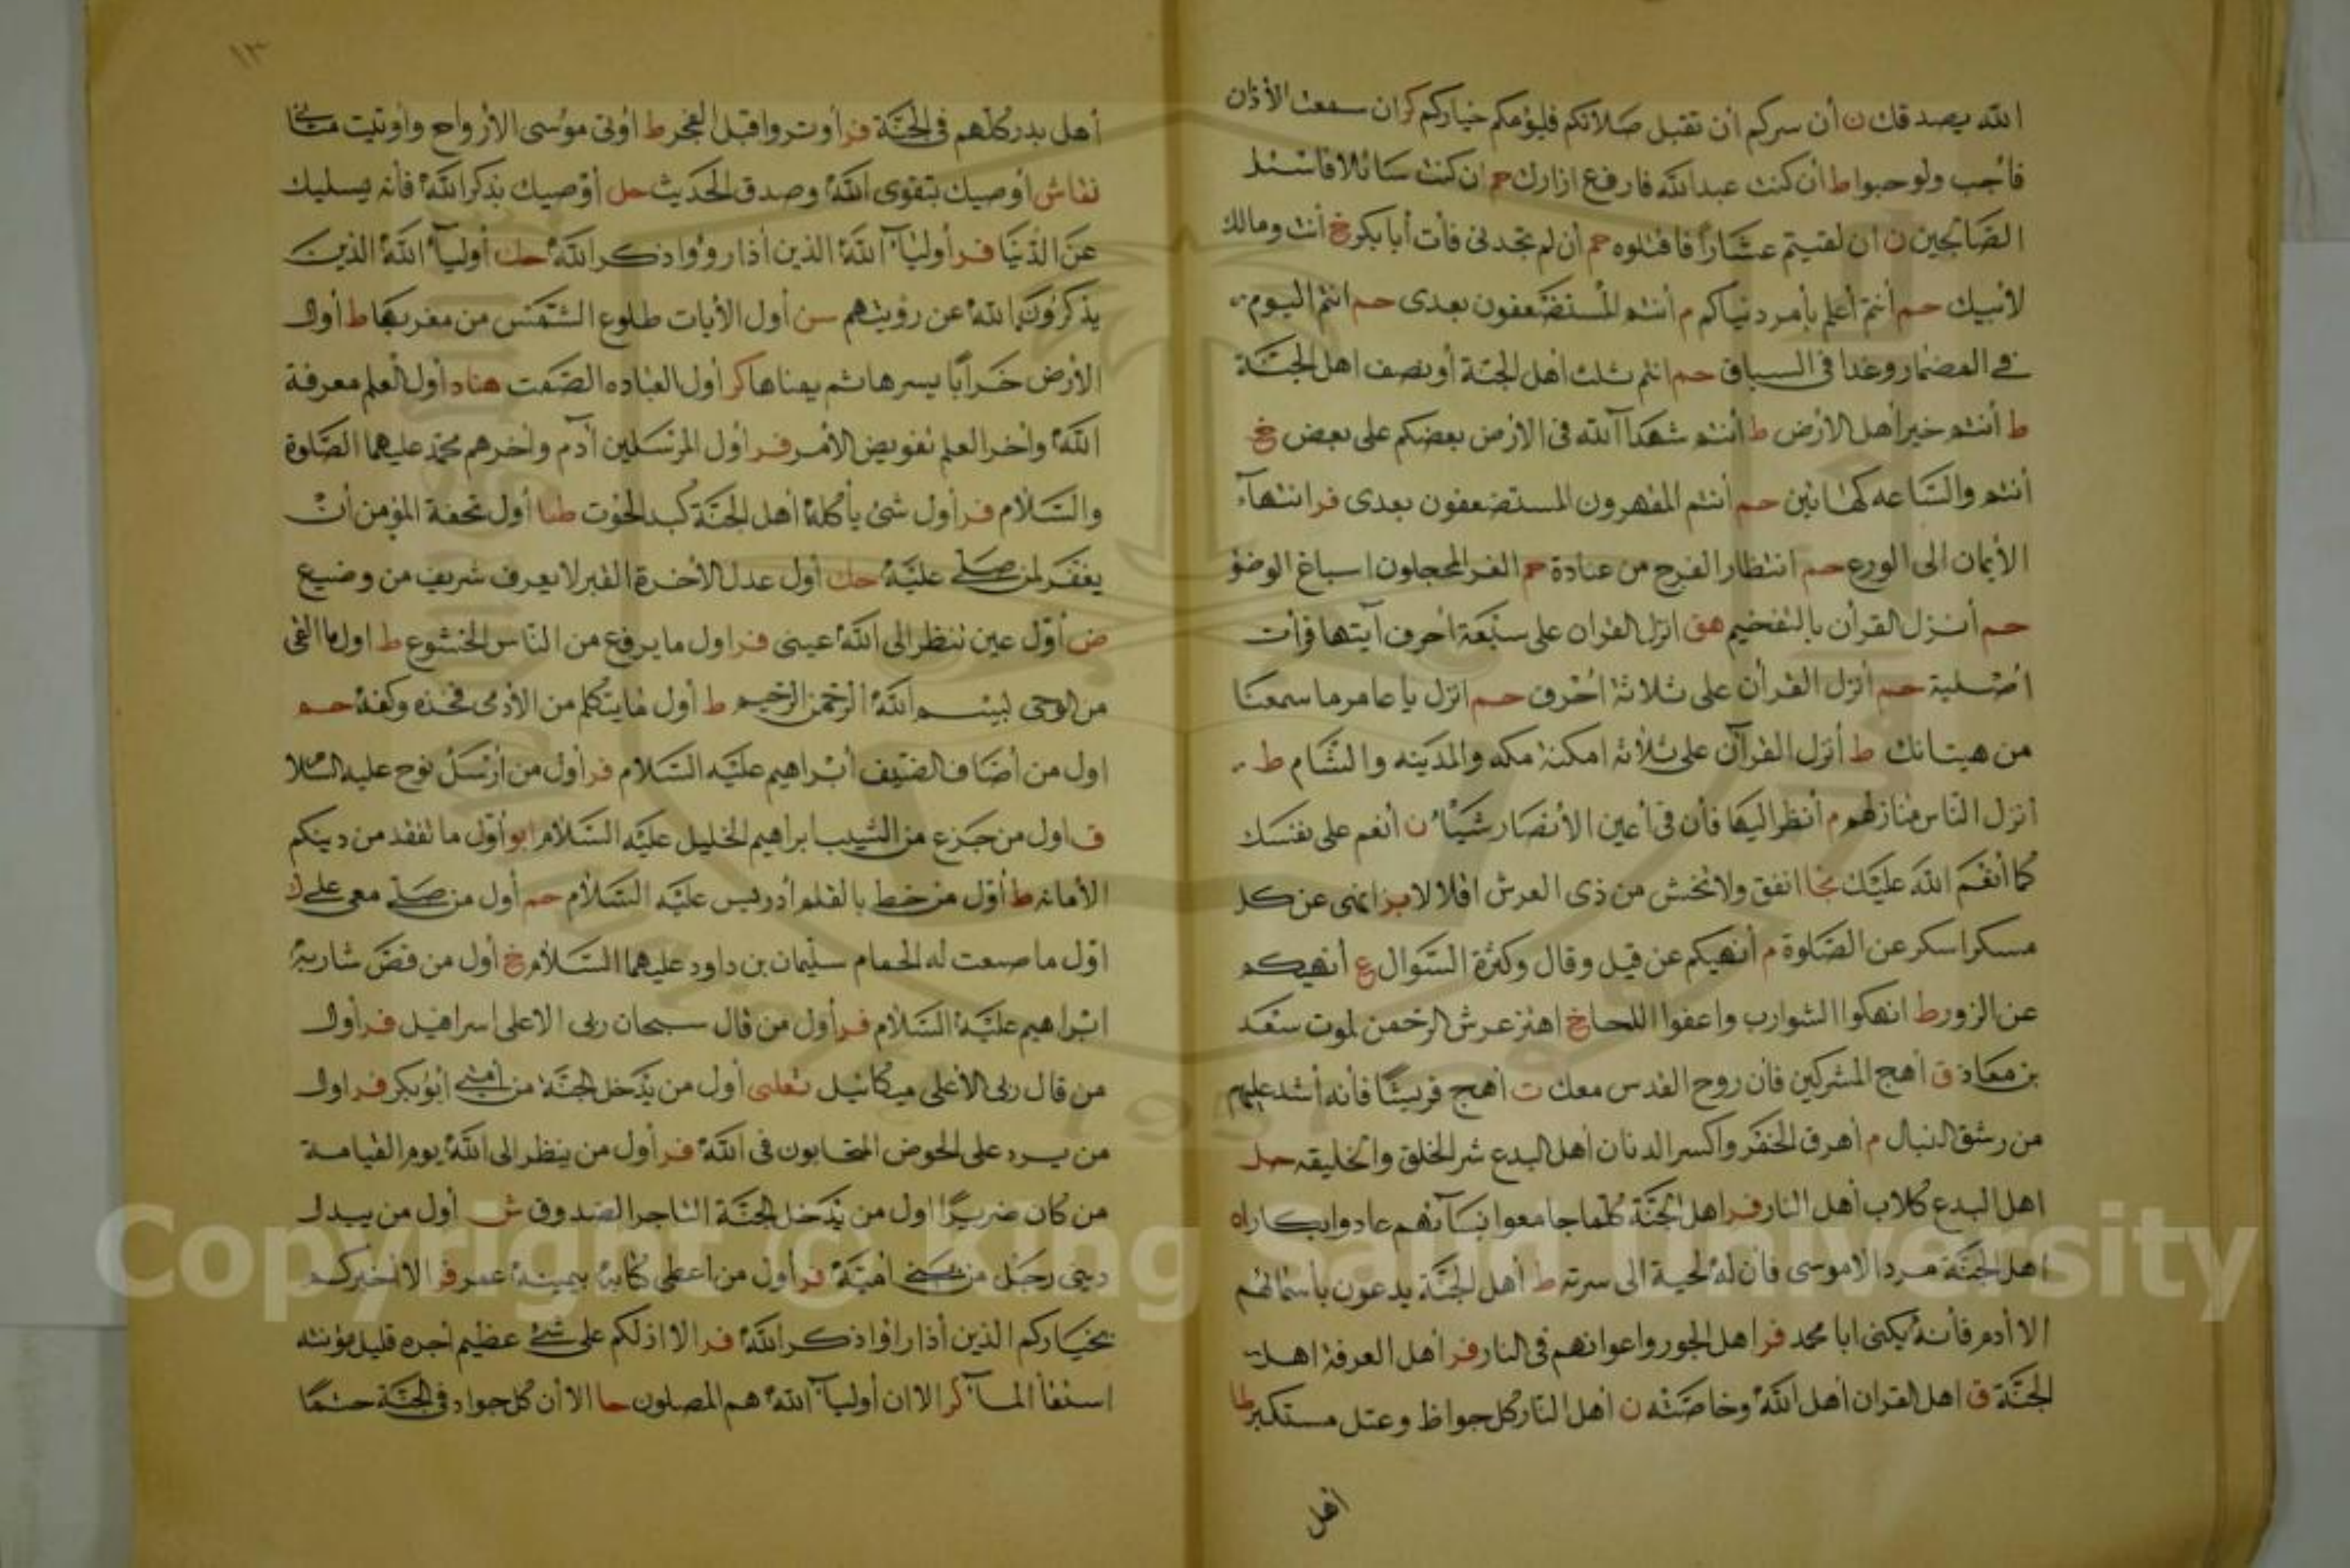 الله يصدقك ن أن سركم أن تقبل صلاتكم فليؤمكم خياركم كر ان سمعت الأذان
فأجب ولو حبوا ط أن كنت عبدالله فارفع ازارك حم ان كنت سائلا فاسئل
الصالحين ن ان لقيتم عشارا فاقتلوه حم أن لم تجدنى فأت أبا بكر خ أنت ومالك
لأبيك حم أنتم أعلم بأمر دنياكم م أنتم المستضعفون بعدى حم انتم اليوم
في المضمار وغدا فى السباق حم انتم ثلث أهل الجنة أو نصف اهل الجنة
ط أنتم خير أهل الأرض ط أنتم شهدآ الله فى الارض بعضكم على بعض خ
أنتم والساعه كهاتين حم أنتم المقهرون المستضعفون بعدى فر انتهآء
الأيمان الى الورع حم انتظار الفرج من عبادة حم الغر المحجلون اسباغ الوضؤ
حم أنزل القرأن بالتفخيم هق انزل القران على سبعة احرف آيتها قرأت
اصبت حم أنزل القرأن على ثلاثة أحرف حم انزل يا عامر ما سمعنا
من هيناتك ط أنزل القرآن على ثلاثه امكنة مكه والمدينه والشام ط
انزل الناس منازلهم م أنظر اليها فأن فى أعين الأنصار شيئا ن أنعم على نفسك
كما أنعم الله عليك نجا انفق ولا تخش من ذى العرش اقلالا بز انهى عن كل
مسكر اسكر عن الصلوة م أنهيكم عن قيل وقال وكثرة السوال ع أنهيكم
عن الزور ط انهكوا الشوارب واعفوا اللحا خ اهتز عرش الرحمن لموت سعد
بن معاذ ق أهج المشركين فأن روح القدس معك ت أهج قريشا فأنه أشد عليهم
من رشق النبال م أهرق الخمر واكسر الدنان أهل البدع شر الخلق والخليقه حل
اهل البدع كلاب أهل النار فر اهل الجنة كلما جامعوا نسآئهم عادوا بكارا ه
اهل الجنة مرد الا موسى فأن له لحية الى سرته ط أهل الجنة يدعون بأسمائهم
الا أدم فأنه يكنى ابا محمد فر اهل الجور واعوانهم فى النار فر أهل العرفة اهل
الجنة ق اهل القران أهل الله وخاصته ن أهل النار كل جواظ وعتل مستكبر طا
اهل
١٣
أهل بدر كلهم فى الجنة فر أوتروا قبل الفجر ط أوتى موسى الارواح وأوتيت
نقاش أوصيك بتقوى الله وصدق الحديث حل أوصيك بذكر الله فأنه يسليك
عن الدنيا فر أوليآء الله الذين أذا رؤوا ذكر الله حك أوليآء الله الذين
يذكرون الله عن رؤيتهم سن أول الأيات طلوع الشمس من مغربها ط أول
الأرض خرابا يسرها ثم يمناها كر أول العباده الصمت هناد أول العلم معرفة
الله وأخر العلم تفويض الأمر فر أول المرسلين آدم وأخرهم محمد عليهما الصلوة
والسلام فر أول شئ يأكله أهل الجنة كبد الحوت طيا أول تحفة المؤمن أن
يغفر لمن صلى عليه حك أول عدل الأخرة القبر لا يعرف شريف من وضيع
ض أول عين تنظر الى الله عينى فر اول ما يرفع من الناس الخشوع ط اول ما القى
من الوحى لبسم الله الرحمن الرحيم ط أول ما يتكلم من الأدمى فخذه وكفه حم
اول من أضاف الضيف أبراهيم عليه السلام فر أول من أرسل نوح عليه السلا
ف اول من جزع من الشيب ابراهيم الخليل عليه السلام ابو أول ما تفقد من دينكم
الأمانه ط أول من خط بالقلم أدريس عليه السلام حم أول من صلى معى على ك
اول ما صنعت له الحمام سليمان بن داود عليهما السلام خ أول من قص شاربه
ابراهيم عليه السلام فر أول من قال سبحان ربى الاعلى اسرافيل فر أول
من قال ربى الأعلى ميكائيل ثعلبى أول من يدخل الجنة من أمتى أبو بكر فر اول
من يرد على الحوض المتحابون فى الله فر أول من ينظر الى الله يوم القيامة
من كان ضريرا اول من يدخل الجنة التاجر الصدوق ش أول من يبدل
دينى رجل من بنى أمية فر أول من اعطى كتابه بيمينه عمر فر الا أخبركم
بخياركم الذين أذا راؤا ذكر الله فر الا ادلكم على شئ عظيم أجره قليل مؤنته
استقأ المآء كر الا ان أوليآء الله هم المصلون حا الا أن كل جواد فى الجنة حتما
Copyright © King Saud University
1957